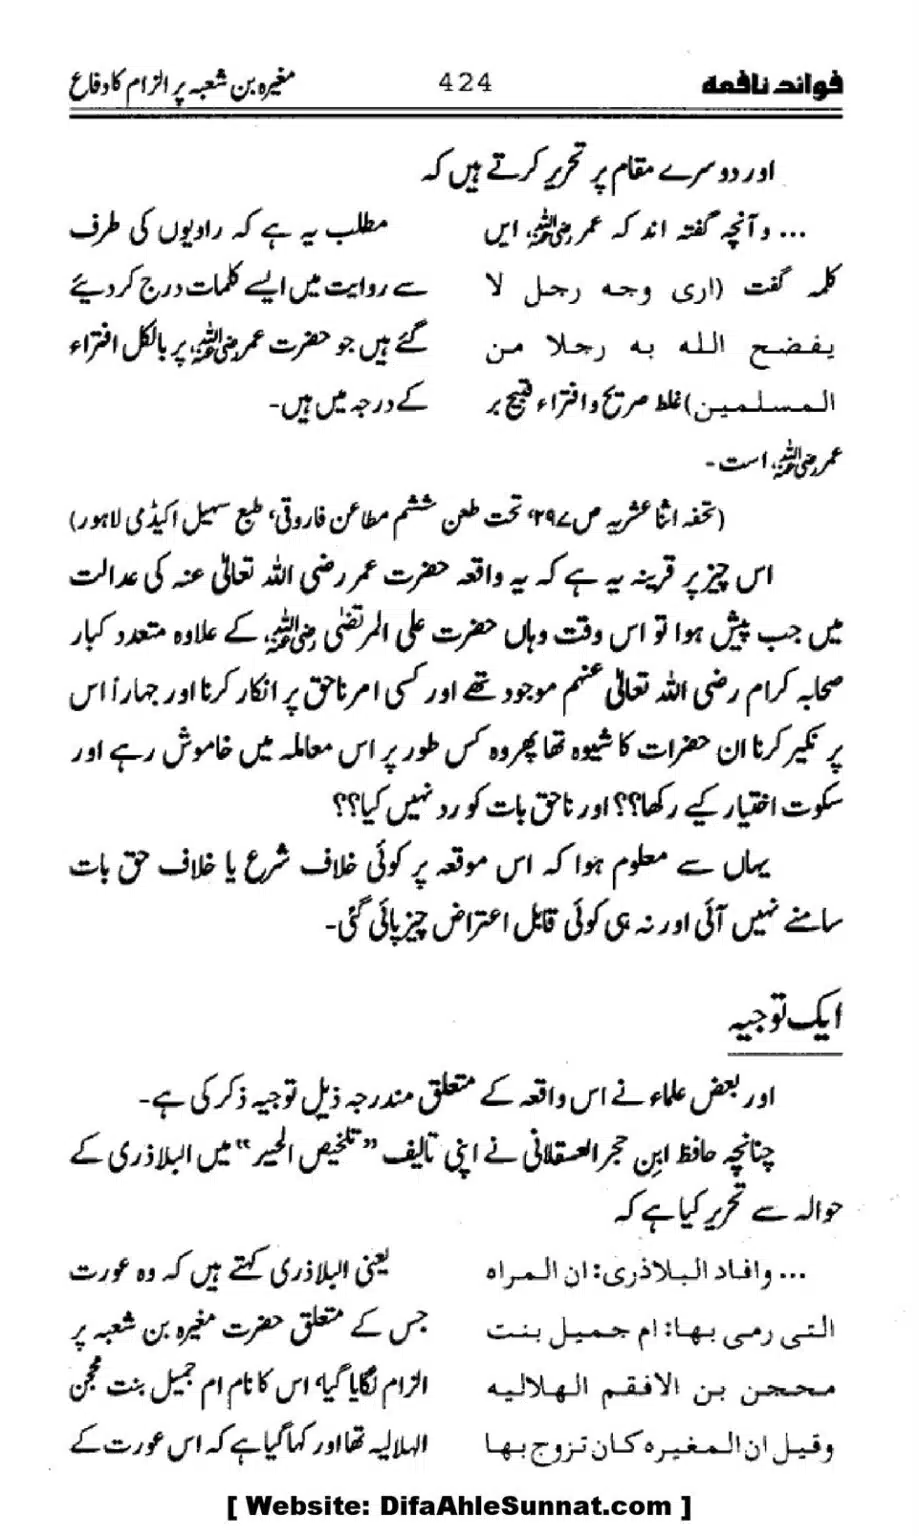 فوائد نافعہ 424 مغیرہ بن شعبہ پر الزام کا دفاع
اور دوسرے مقام پر تحریر کرتے ہیں کہ
... و آنچہ گفتہ اند کہ عمر رضی اللہ عنہ، ایں
کلمہ گفت (اری وجہ رجل لا
یفضح اللہ بہ رجلا من
المسلمین) غلط صریح و افتراء قبیح بر
عمر رضی اللہ عنہ، است۔
مطلب یہ ہے کہ راویوں کی طرف
سے روایت میں ایسے کلمات درج کر دیئے
گئے ہیں جو حضرت عمر رضی اللہ عنہ، پر بالکل افتراء
کے درجہ میں ہیں۔
(تحفہ اثنا عشریہ ص ۲۹۷، تحت طعن ششم مطاعن فاروقی، طبع سہیل اکیڈمی لاہور)
اس چیز پر قرینہ یہ ہے کہ یہ واقعہ حضرت عمر رضی اللہ تعالیٰ عنہ کی عدالت
میں جب پیش ہوا تو اس وقت وہاں حضرت علی المرتضیٰ رضی اللہ عنہ، کے علاوہ متعدد کبار
صحابہ کرام رضی اللہ تعالیٰ عنہم موجود تھے اور کسی امر ناحق پر انکار کرنا اور جہاراً اس
پر نکیر کرنا ان حضرات کا شیوہ تھا پھر وہ کس طور پر اس معاملہ میں خاموش رہے اور
سکوت اختیار کیے رکھا؟؟ اور ناحق بات کو رد نہیں کیا؟؟
یہاں سے معلوم ہوا کہ اس موقعہ پر کوئی خلاف شرع یا خلاف حق بات
سامنے نہیں آئی اور نہ ہی کوئی قابل اعتراض چیز پائی گئی۔
ایک توجیہ
اور بعض علماء نے اس واقعہ کے متعلق مندرجہ ذیل توجیہ ذکر کی ہے۔
چنانچہ حافظ ابن حجر العسقلانی نے اپنی تالیف "تلخیص الحبیر" میں البلاذری کے
حوالہ سے تحریر کیا ہے کہ
... وافاد البلاذری: ان المراہ
التی رمی بھا: ام جمیل بنت
محجن بن الافقم الھلالیہ
وقیل ان المغیرہ کان تزوج بھا
یعنی البلاذری کہتے ہیں کہ وہ عورت
جس کے متعلق حضرت مغیرہ بن شعبہ پر
الزام لگایا گیا، اس کا نام ام جمیل بنت محجن
الہلالیہ تھا اور کہا گیا ہے کہ اس عورت کے
[ Website: DifaAhleSunnat.com ]